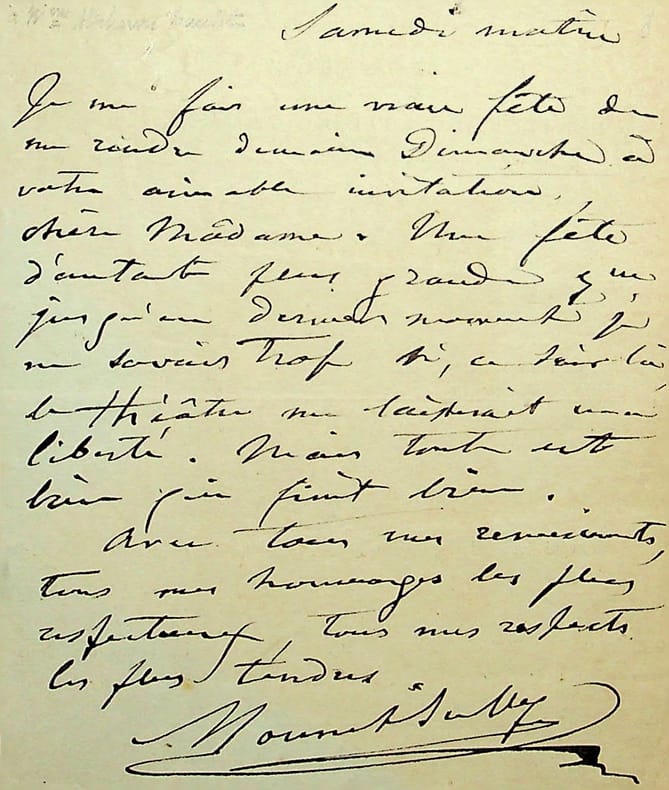 Samedi matin
Je me fais une vraie fête de
me rendre demain Dimanche à
votre aimable invitation,
chère Madame. Une fête
d'autant plus grande que
jusqu'au dernier moment je
ne savais trop si, ce soir là,
le théâtre me laisserait ma
liberté. Mais tout est
bien qui finit bien.
Avec tous mes remerciements,
tous mes hommages les plus
respectueux, tous mes respects
les plus tendres
Mounet-Sully